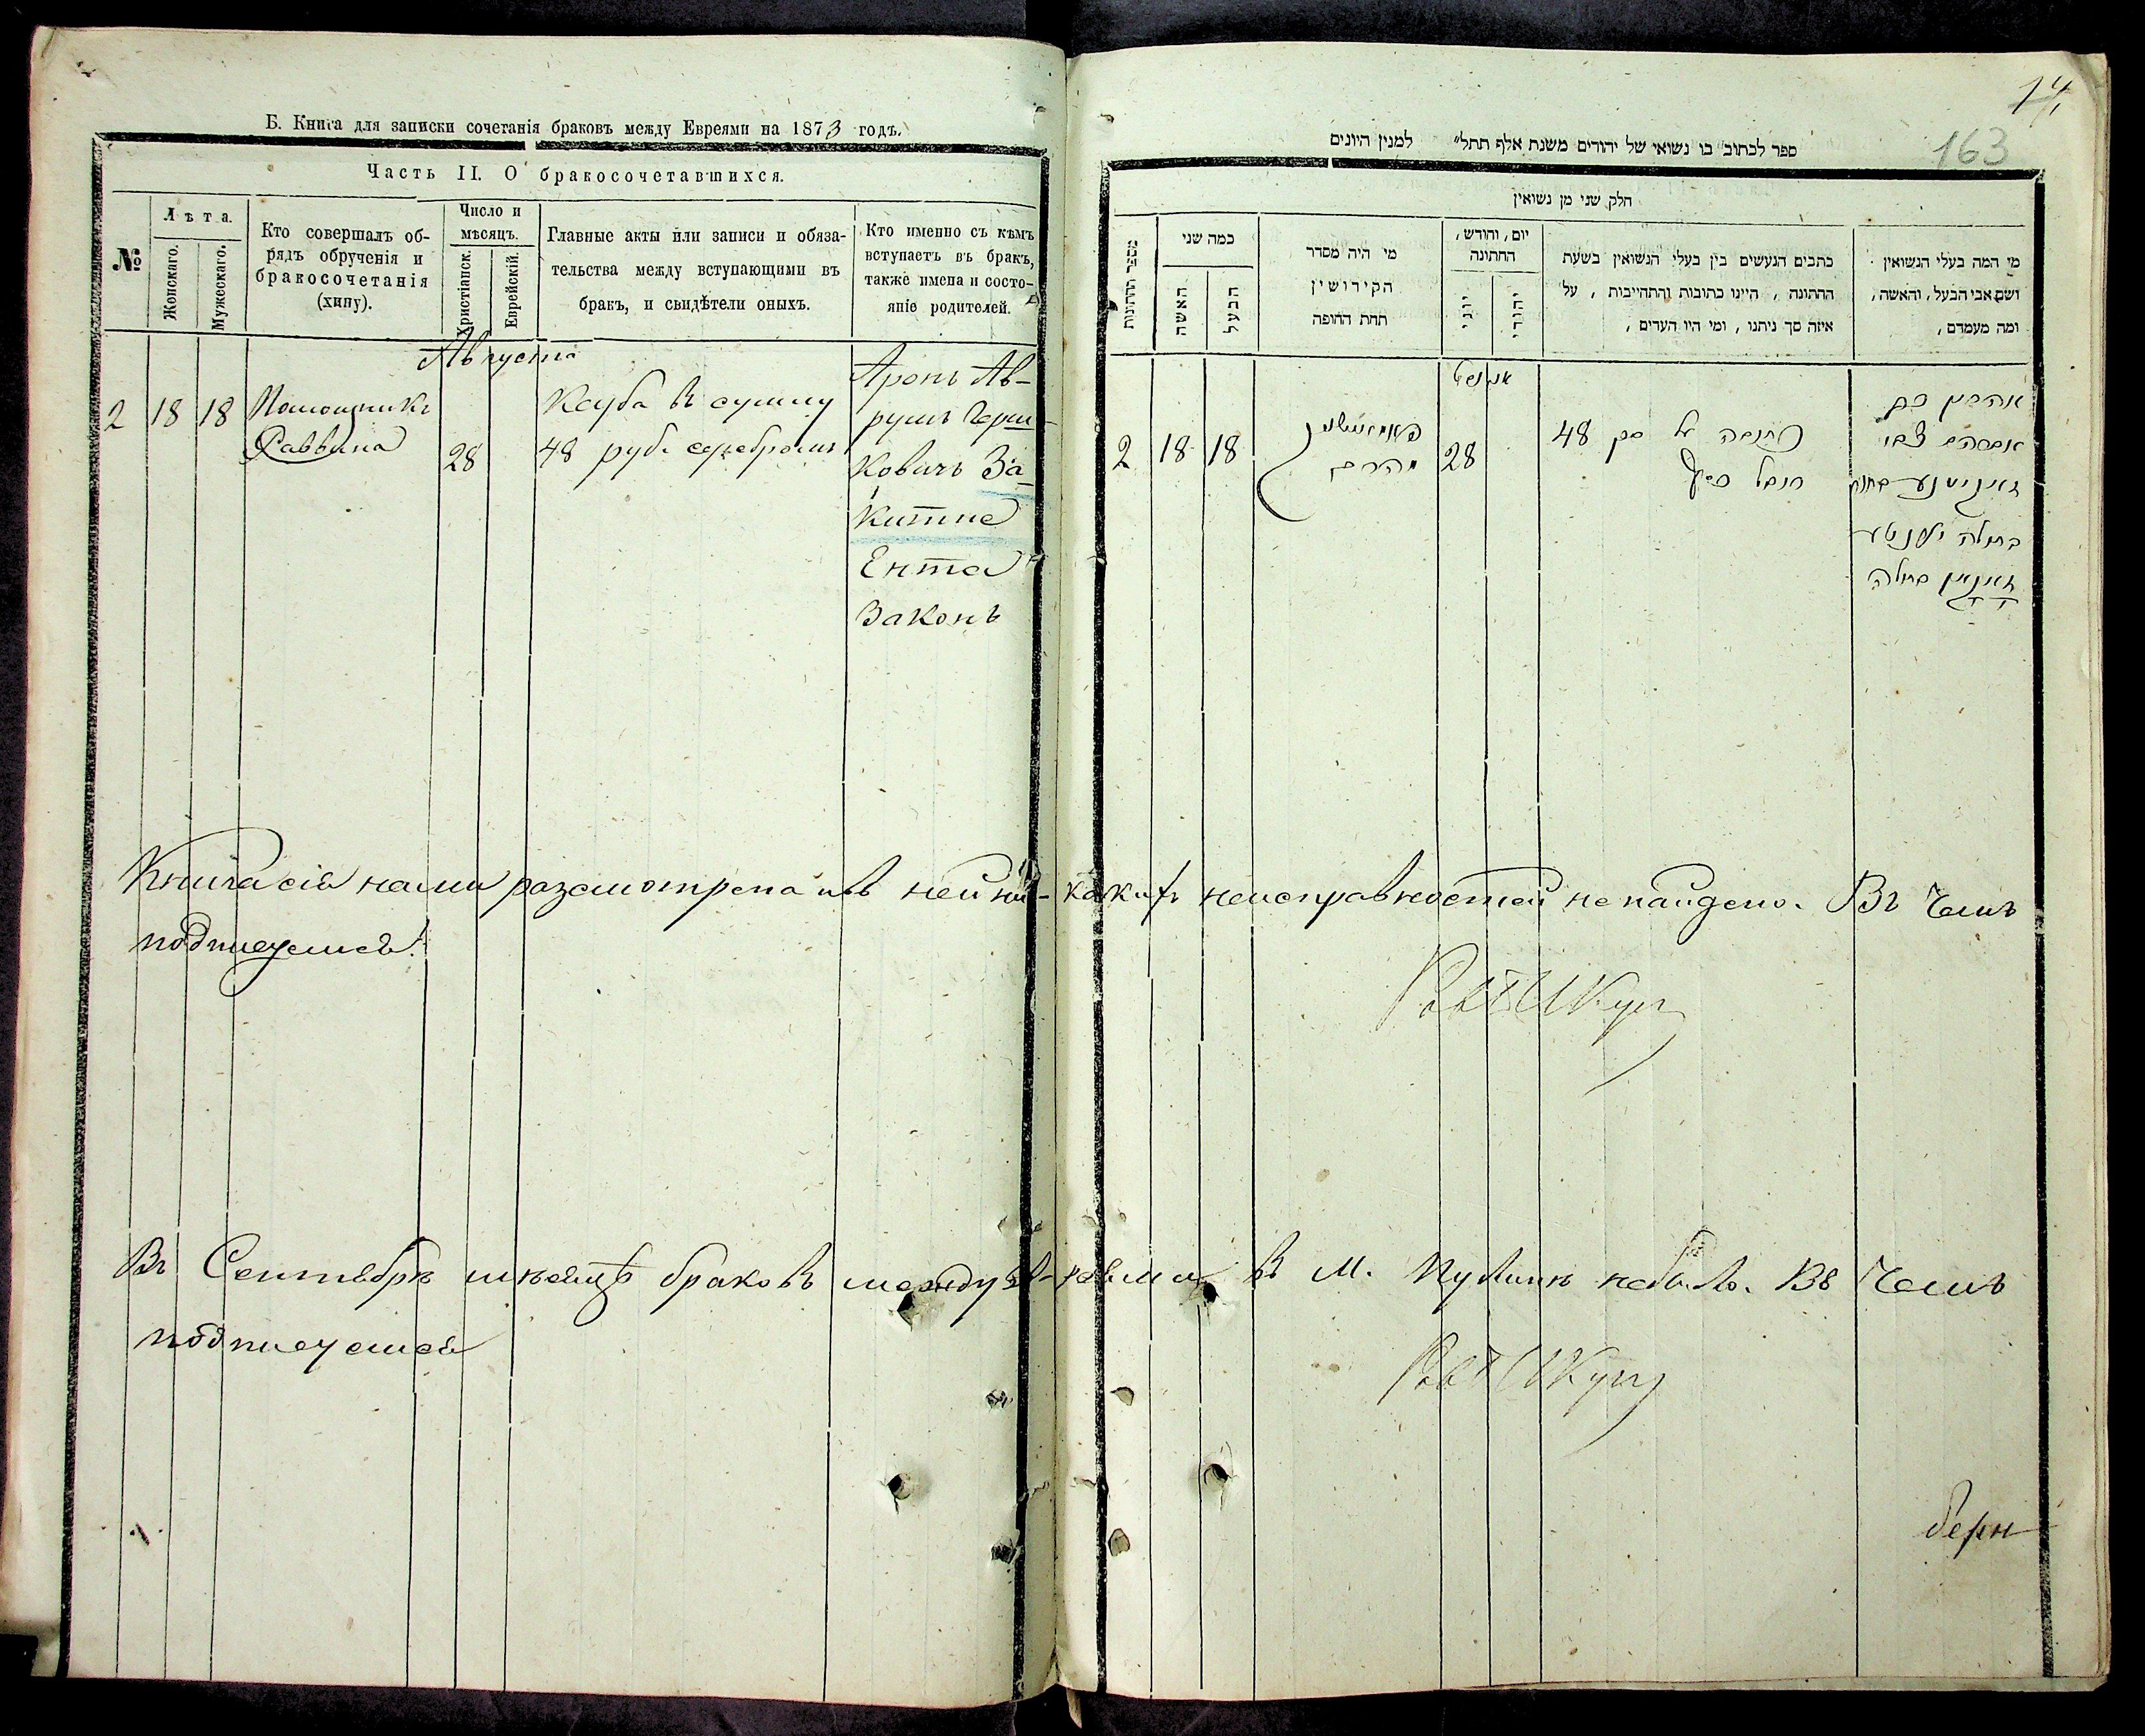 Б. Книга для записки сочетанія браковъ между Евреями на 1873 годъ.
Часть II. О бракосочетавшихся.
№
Лѣта.
Женскаго.
Мужескаго.
Кто совершалъ об-
рядъ обрученія и
бракосочетанія
(хипу).
Число и
мѣсяцъ.
Христіанск.
Еврейскій.
Главные акты или записи и обяза-
тельства между вступающими въ
бракъ, и свидѣтели оныхъ.
Кто именно съ кѣмъ
вступаетъ въ бракъ,
также имена и состо-
яніе родителей.
Августа
2 18 18
Помощникъ
Раввина
28
Ксуба въ сумму
48 руб. серебромъ
Аронъ Ав-
румъ Герш-
ковичъ За-
китне
Ента
Законъ
14
163
ספר לכתוב בו נשואי של יהודים משנת אלף תתל״ למנין היונים
חלק שני מן נשואין
מספר החתונות
כמה שני
האשה
הבעל
מי היה מסדר
הקידושין
תחת החופה
יום, וחודש,
החתונה
יוני
יהודי
כתבים הנעשים בין בעלי הנשואין בשעת
החתונה, היינו כתובות והתהייבות, על
איזה סך ניתנו, ומי היו העדים,
מי המה בעלי הנשואין
ושם אבי הבעל, והאשה,
ומה מעמדם,
2 18 18
28
כתובה על סך 48
רובל כסף
אהרן
אברהם צבי
בתולה יענטע
Книга сія нами разсмотрена и въ ней ни-какихъ неисправностей не найдено. Въ чемъ
подписуемся:
Въ Сентябрѣ мѣсяцѣ браковъ между Ев-реями въ м. Пулинѣ небыло. Въ чемъ
подписуемся